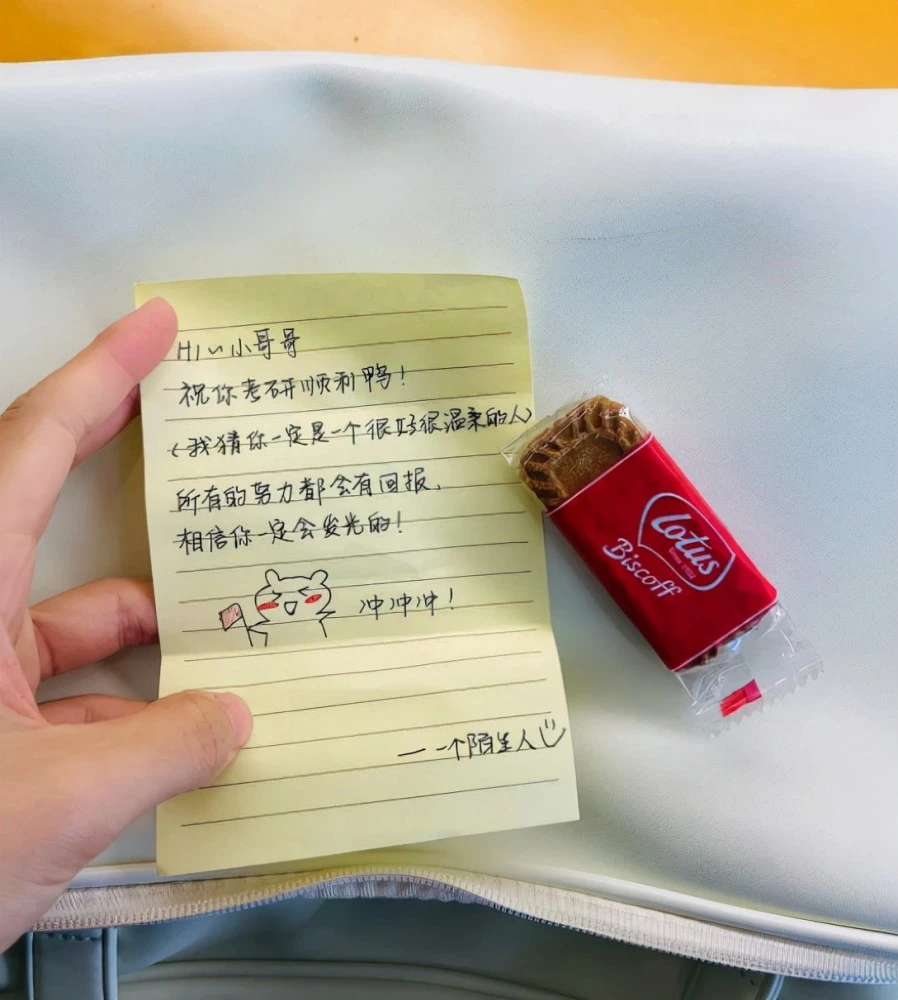 Hi~小哥哥
祝你考研顺利鸭!
(我猜你一定是一个很好很温柔的人)
所有的努力都会有回报,
相信你一定会发光的!
冲冲冲!
——一个陌生人
Lotus
Biscoff